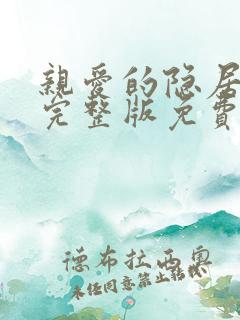 親愛的隐居
完整版免費
德布拉西奥
未经同意禁止转载